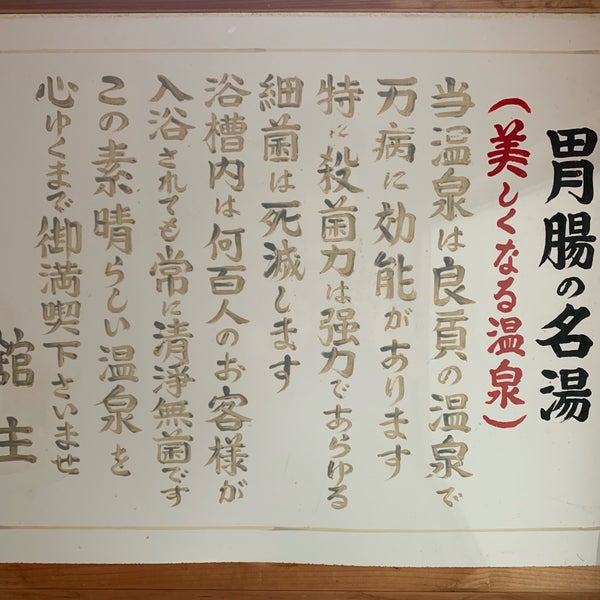 胃腸の名湯
(美しくなる温泉)
当温泉は良質の温泉で
万病に効能があります
特に殺菌力は強力であらゆる
細菌は死滅します
浴槽内は何百人のお客様が
入浴されても常に清浄無菌です
この素晴らしい温泉を
心ゆくまで御満喫下さいませ
舘主